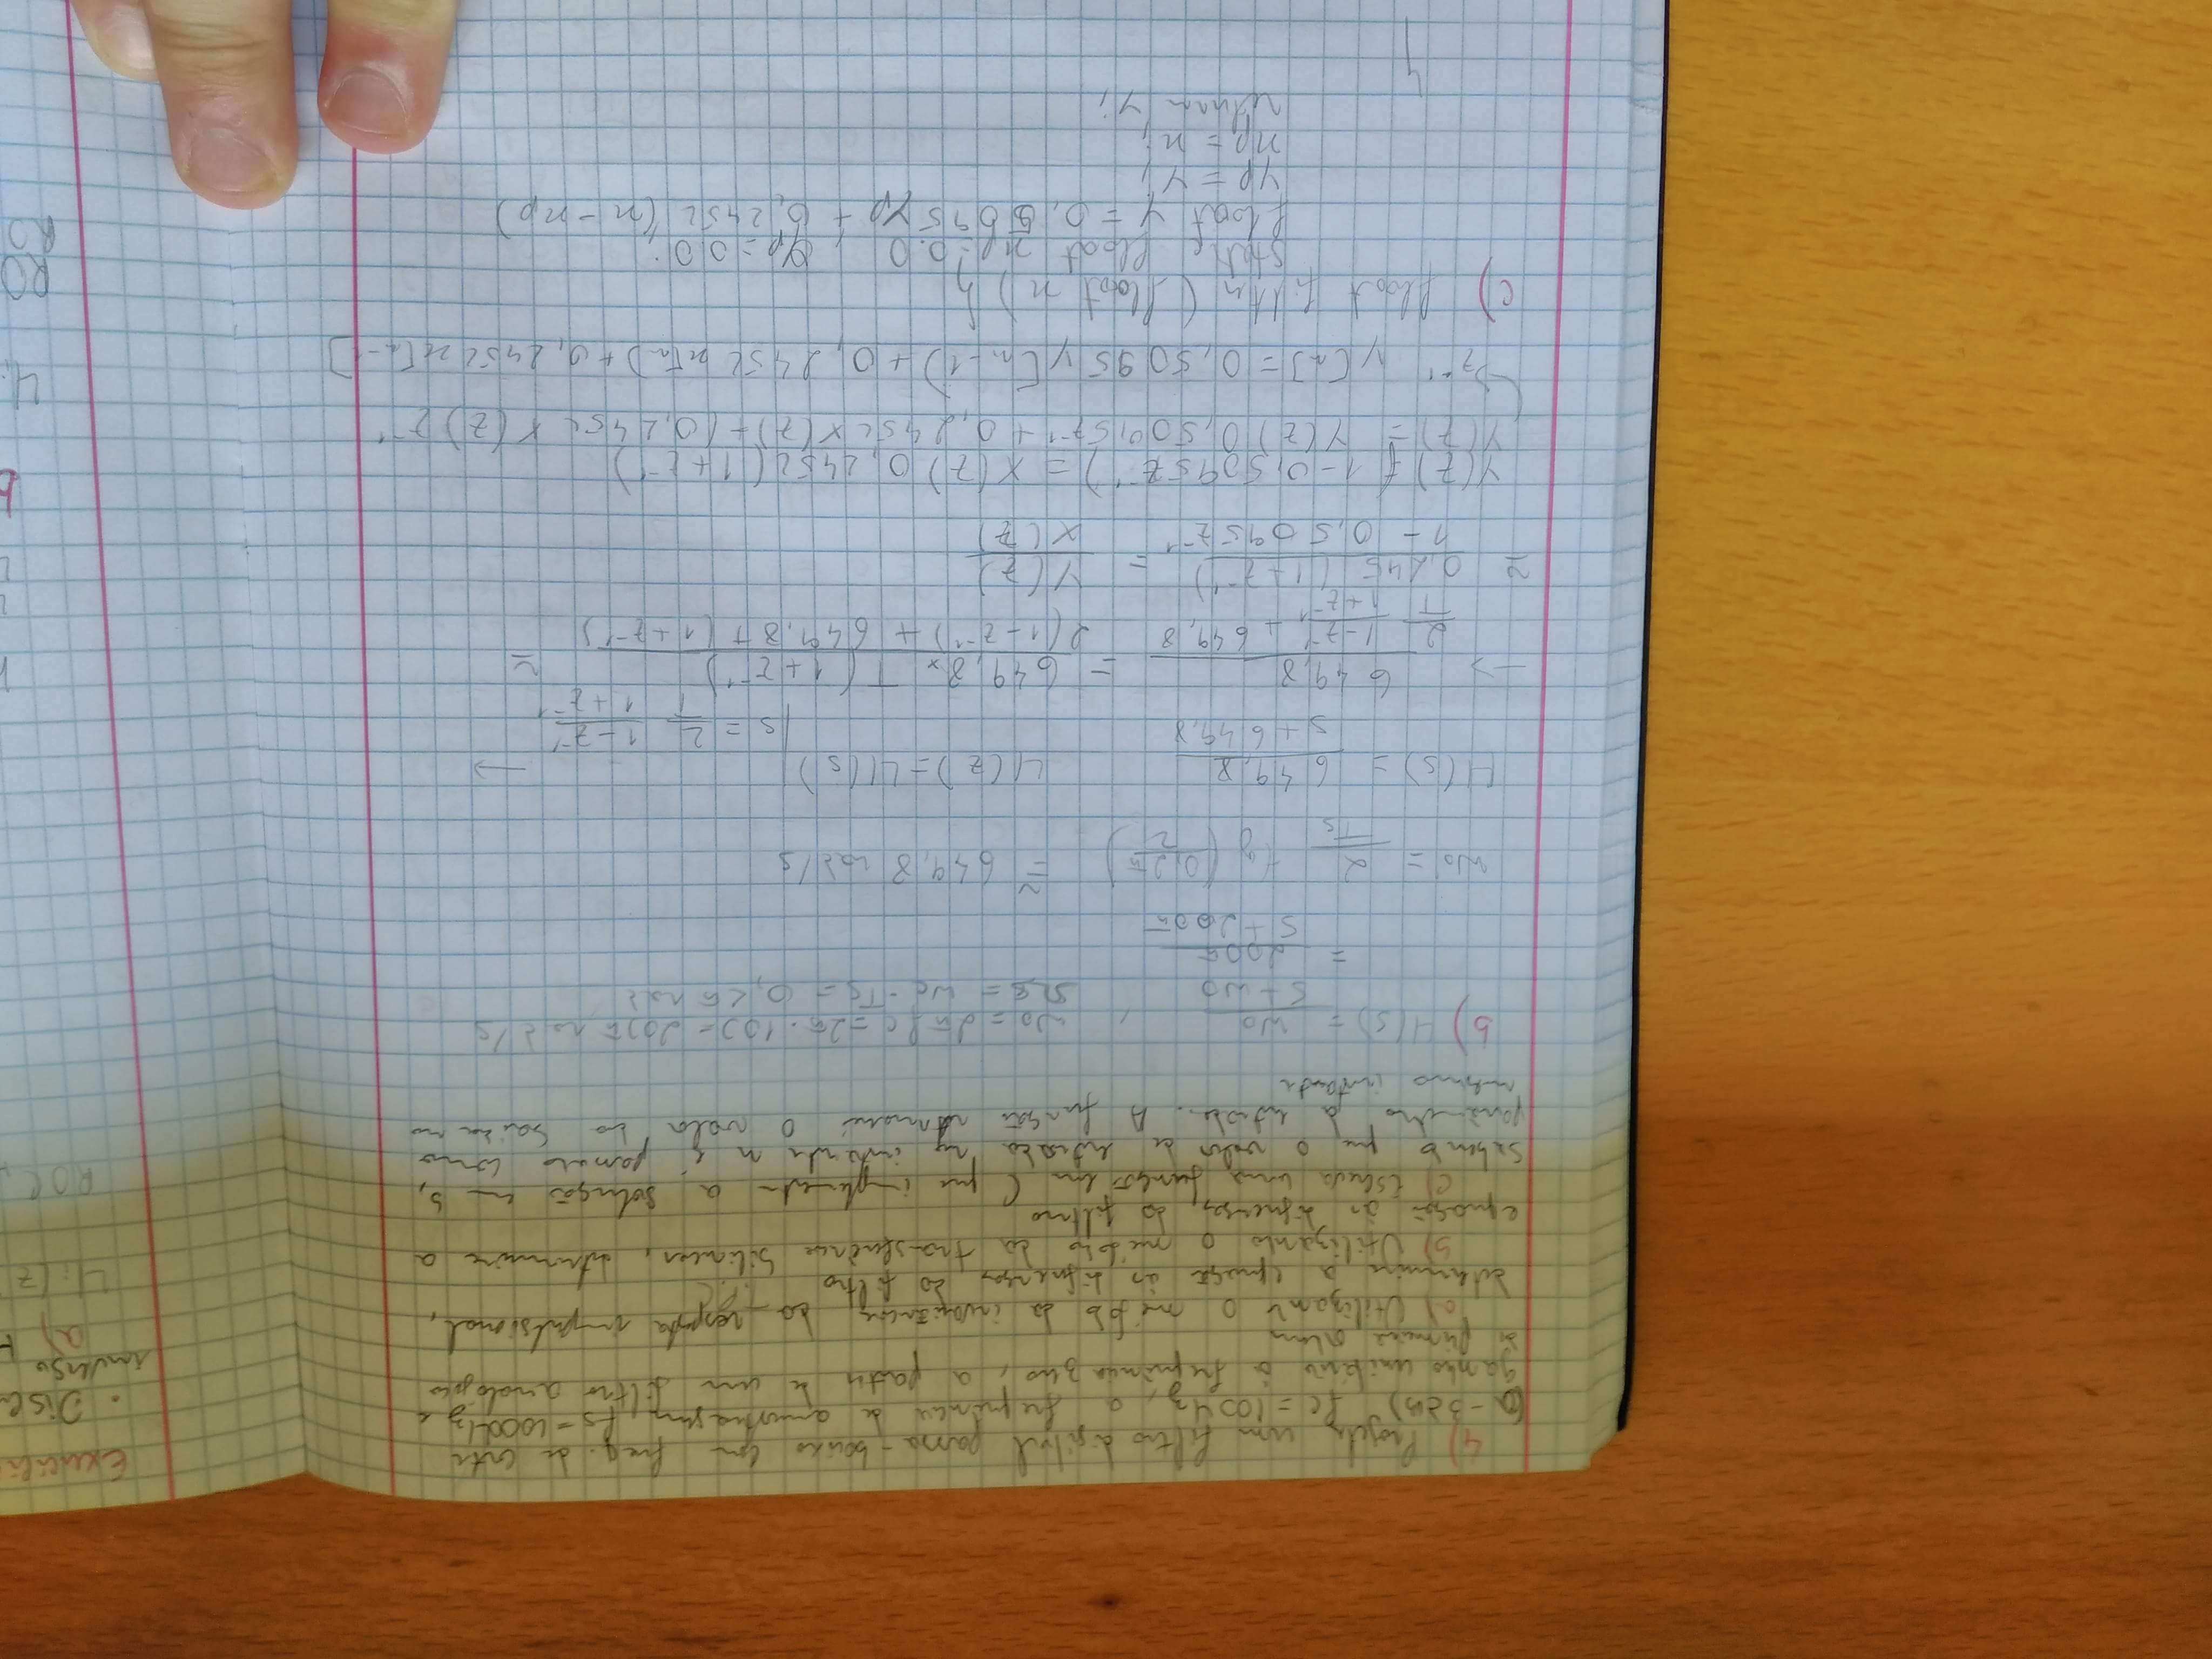 4) Projete um filtro digital passa-baixo com freq. de corte
(a -3dB) fc = 100Hz, a frequência de amostragem, fs = 1000Hz e
ganho unitário à frequência zero, a partir de um filtro analógico
de primeira ordem
a) Utilizando o método da invariância da resposta impulsional,
determine a equação às diferenças do filtro
b) Utilizando o método da transferência bilinear, determine a
equação às diferenças, do filtro
c) Escreva uma função em C que implemente a solução em b,
sabendo que o valor de entrada no instante n é passado como
parâmetro de entrada. A função retornará o valor da saída no
mesmo instante
b) H(s) = w0 / (s + w0) , w0 = 2π fc = 2π · 100 = 200π rad/s
= 200π / (s + 200π) Ωc = wc · Ts = 0,2π rad
w0 = 2/Ts tg (0,2π / 2) ≅ 649,8 rad/s
H(s) = 649,8 / (s + 649,8) H(z) = H(s) | s = 2/T (1 - z⁻¹)/(1 + z⁻¹) →
→ 649,8 / (2/T (1 - z⁻¹)/(1 + z⁻¹) + 649,8) = 649,8 × T (1 + z⁻¹) / (2(1 - z⁻¹) + 649,8T (1 + z⁻¹)) ≃
≃ 0,245 (1 + z⁻¹) / (1 - 0,5095 z⁻¹) = Y(z) / X(z)
Y(z) (1 - 0,5095 z⁻¹) = X(z) 0,2452 (1 + z⁻¹)
Y(z) = Y(z) 0,5095 z⁻¹ + 0,2452 X(z) + (0,2452 X(z)) z⁻¹
z⁻¹ y[n] = 0,5095 y[n-1] + 0,2452 x[n] + 0,2452 x[n-1]
c) float filtro (float n) {
static float np = 0.0, yp = 0.0;
float y = 0,5095 yp + 0,2452 (n - np)
yp = y;
np = n;
return y;
}
RO
RO
ROC
Hi(z
a)
inverso
• Disc
Exercíci